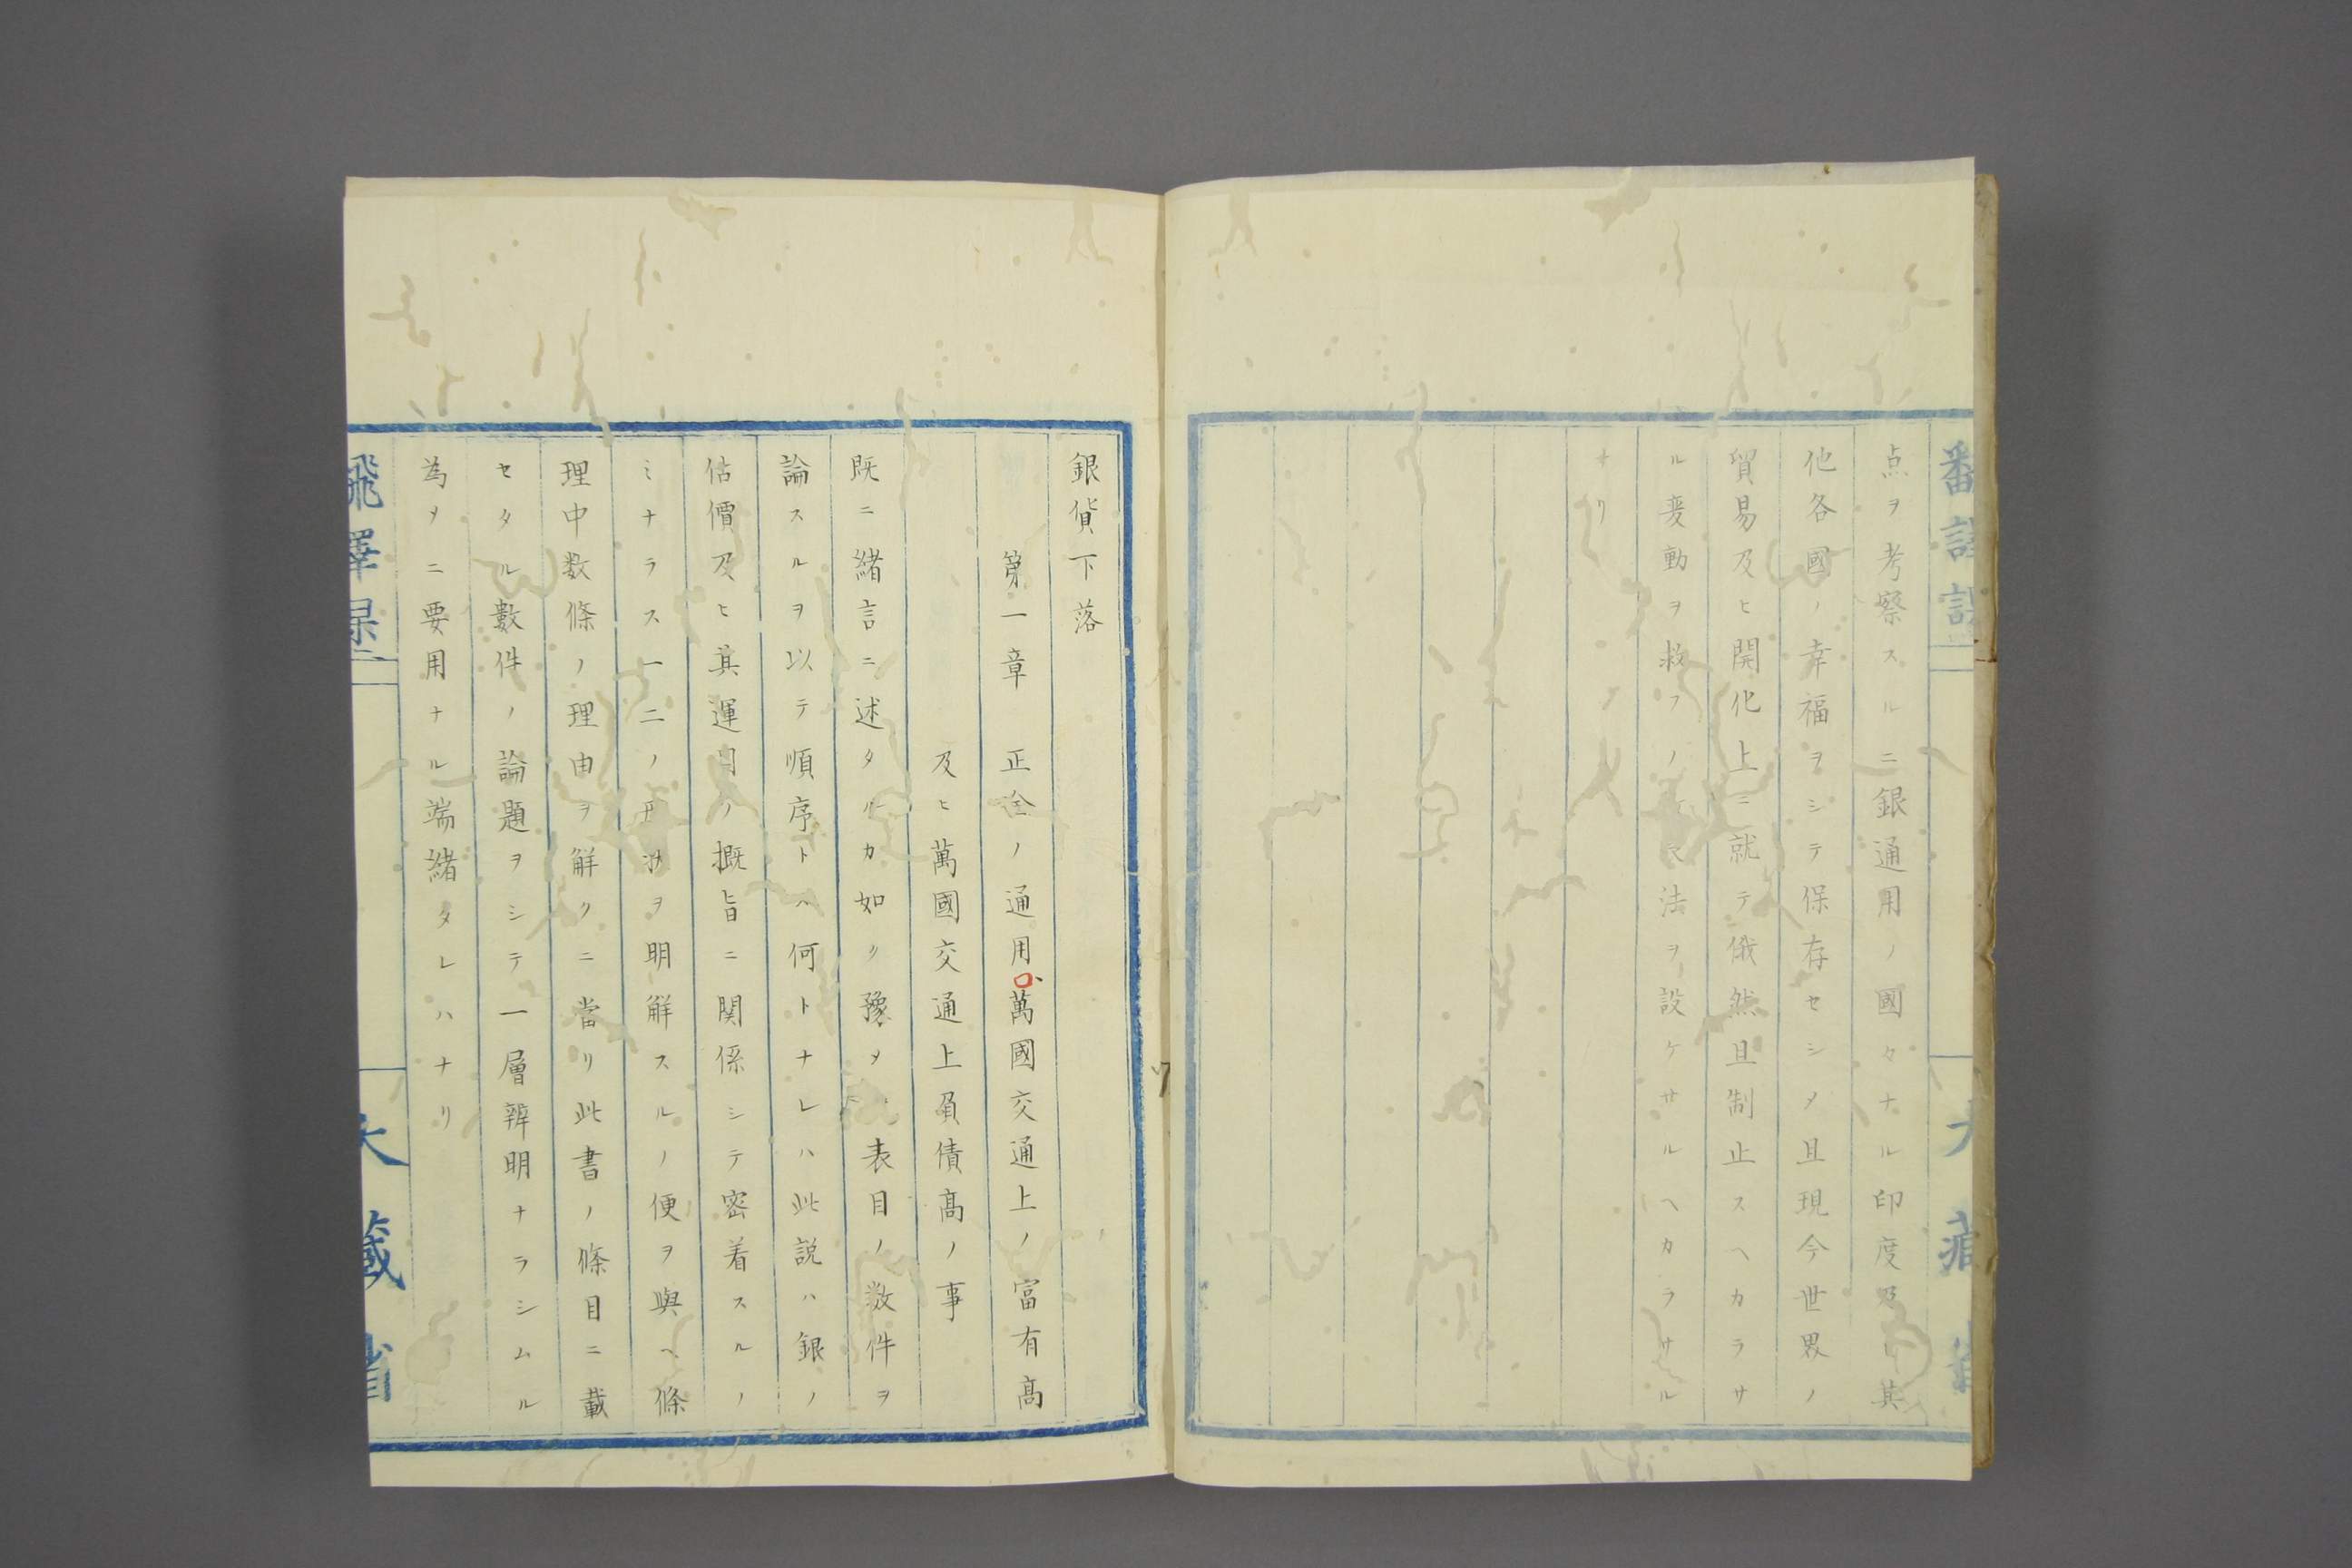 点ヲ考察スルニ銀通用ノ國々ナル印度及ヒ其
他各國ノ幸福ヲシテ保存セシメ且現今世界ノ
貿易及ヒ開化上ニ就テ俄然且制止スヘカラサ
ル変動ヲ救フノ法ヲ設ケサルヘカラサル
ナリ
銀貨下落
第一章 正金ノ通用萬國交通上ノ富有高
及ヒ萬國交通上負債高ノ事
既ニ緒言ニ述タルカ如ク豫メ表目ノ数件ヲ
論スルヲ以テ順序トハ何トナレハ此説ハ銀ノ
估價及ヒ其運用ノ概旨ニ関係シテ密着スルノ
ミナラス一二ノヲ明解スルノ便ヲ與ヘ條
理中数條ノ理由ヲ解クニ當リ此書ノ條目ニ載
セタル數件ノ論題ヲシテ一層辨明ナラシムル
為メニ要用ナル端緒タレハナリ
飜譯課
大藏省